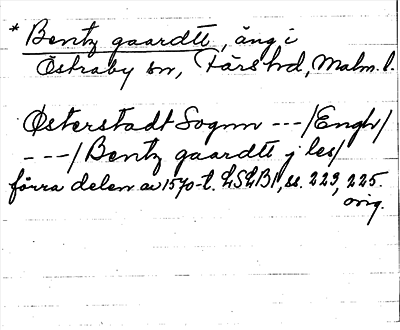 * Bentz gaardtt, äng i
Östraby sn, Färs hd, Malm. l.
Østerstadt Sognn ---/Engh/
---/Bentz gaardtt j les/
förra delen av 1570-t. LSLB1, ss. 223, 225.
orig.